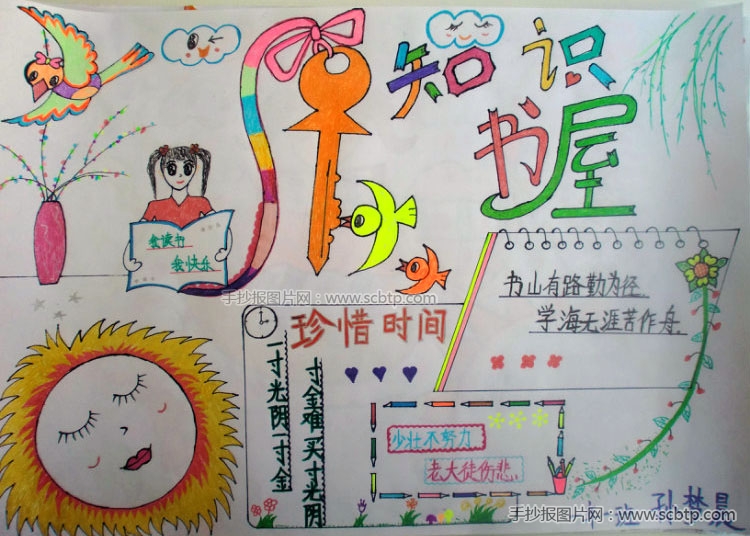 知识
书屋
读书
我快乐
手抄报图片网：www.scbtp.com
书山有路勤为径
学海无涯苦作舟
珍惜时间
一寸光阴一寸金
寸金难买寸光阴
少壮不努力
老大徒伤悲
一班 孙梦晨
手抄报图片网：www.scbtp.com